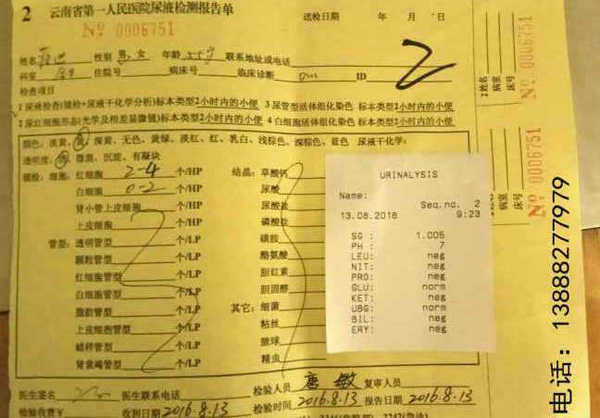 2 云南省第一人民医院尿液检测报告单 送检日期 年 月 日
№ 0006751
姓名 性别 男，女 年龄 55岁 联系地址或电话
科室 住院号 病床号 临床诊断 ID 2
检查项目
1 尿液检查(镜检+尿液干化学分析)标本类型2小时内的小便 3 尿管型活体组化染色 标本类型2小时内的小便
2 尿红细胞形态(光学及相差显微镜)标本类型2小时内的小便 4 白细胞活体组化染色 标本类型2小时内的小便
颜色：淡黄、黄、深黄、无色、黄绿、淡红、红、乳白、浅棕色、深棕色、蓝色 尿液干化学：
透明度：清 微浑、沉淀、有凝块
镜检：细胞：红细胞 2-4 个/HP 结晶：草酸钙
白细胞 0-2 个/HP 尿酸
肾小管上皮细胞 个/HP 尿酸盐
上皮细胞 个/HP 磷酸盐
管型：透明管型 个/LP 磺胺
颗粒管型 个/LP 酪氨酸
红细胞管型 个/LP 胆红素
白细胞管型 个/LP 胆固醇
脂肪管型 个/LP 其它：细菌
上皮细胞管型 个/LP 粘丝
蜡样管型 个/LP 脓球
肾衰竭管型 个/LP 精虫
医生签名 医生联系电话 检验人员 唐敏 复审人员
检验收费 收到日期 2016.8.13 检验时间 2016.8.13 报告日期 2016.8.13
URINALYSIS
Name:
Seq.no. 2
13.08.2016 9:23
SG : 1.005
PH : 7
LEU: neg
NIT: neg
PRO: neg
GLU: norm
KET: neg
UBG: norm
BIL: neg
ERY: neg
1姓名 病室 床号 № 0006751
2姓名 病室 床号 № 0006751
电话：13888277979